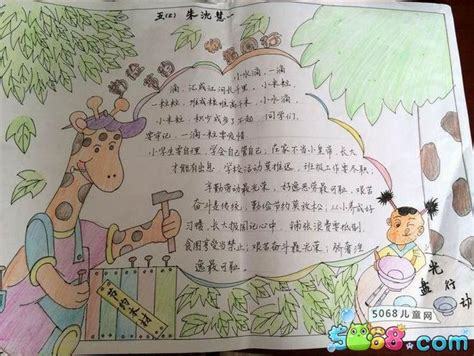 五(2) 朱沈慧
勤俭节约 你我同行
小水滴,一滴
滴,汇成江河长千里,小米粒,
一粒粒,堆成米粮高千,小水滴,
小米粒,积少成多了不起,同学们,
要牢记,一滴一粒要爱惜。
小学生要自理,学会自己管自己;在家不当小皇帝,长大
才能有出息,学校活动莫推迟,班级工作要尽职。
辛勤劳动最光荣,好逸恶劳最可耻,艰苦
奋斗是传统,勤俭节约莫放松;从小养成好
习惯,长大报国记心中,铺张浪费要抵制,
贪图享受当禁止;艰苦奋斗最光荣;骄奢淫
逸最可耻。
节约木材
光
盘 行
动
5068儿童网
5068.com